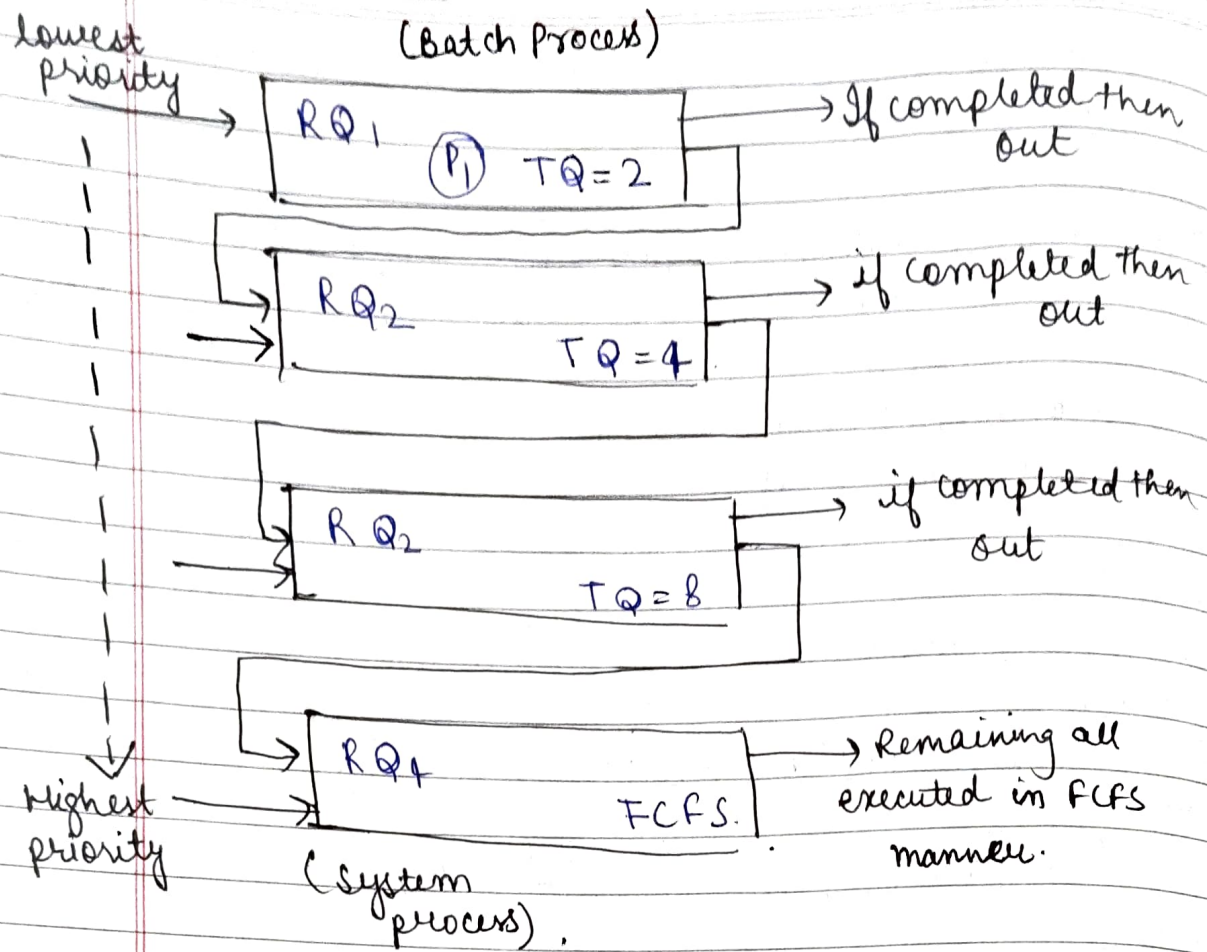 lowest
priority
(Batch Process)
RQ1
P1 TQ=2
If completed then
out
RQ2
TQ=4
if completed then
out
RQ2
TQ=8
if completed then
out
RQ4
FCFS.
Remaining all
executed in FCFS
manner.
Highest
priority
(system
process).